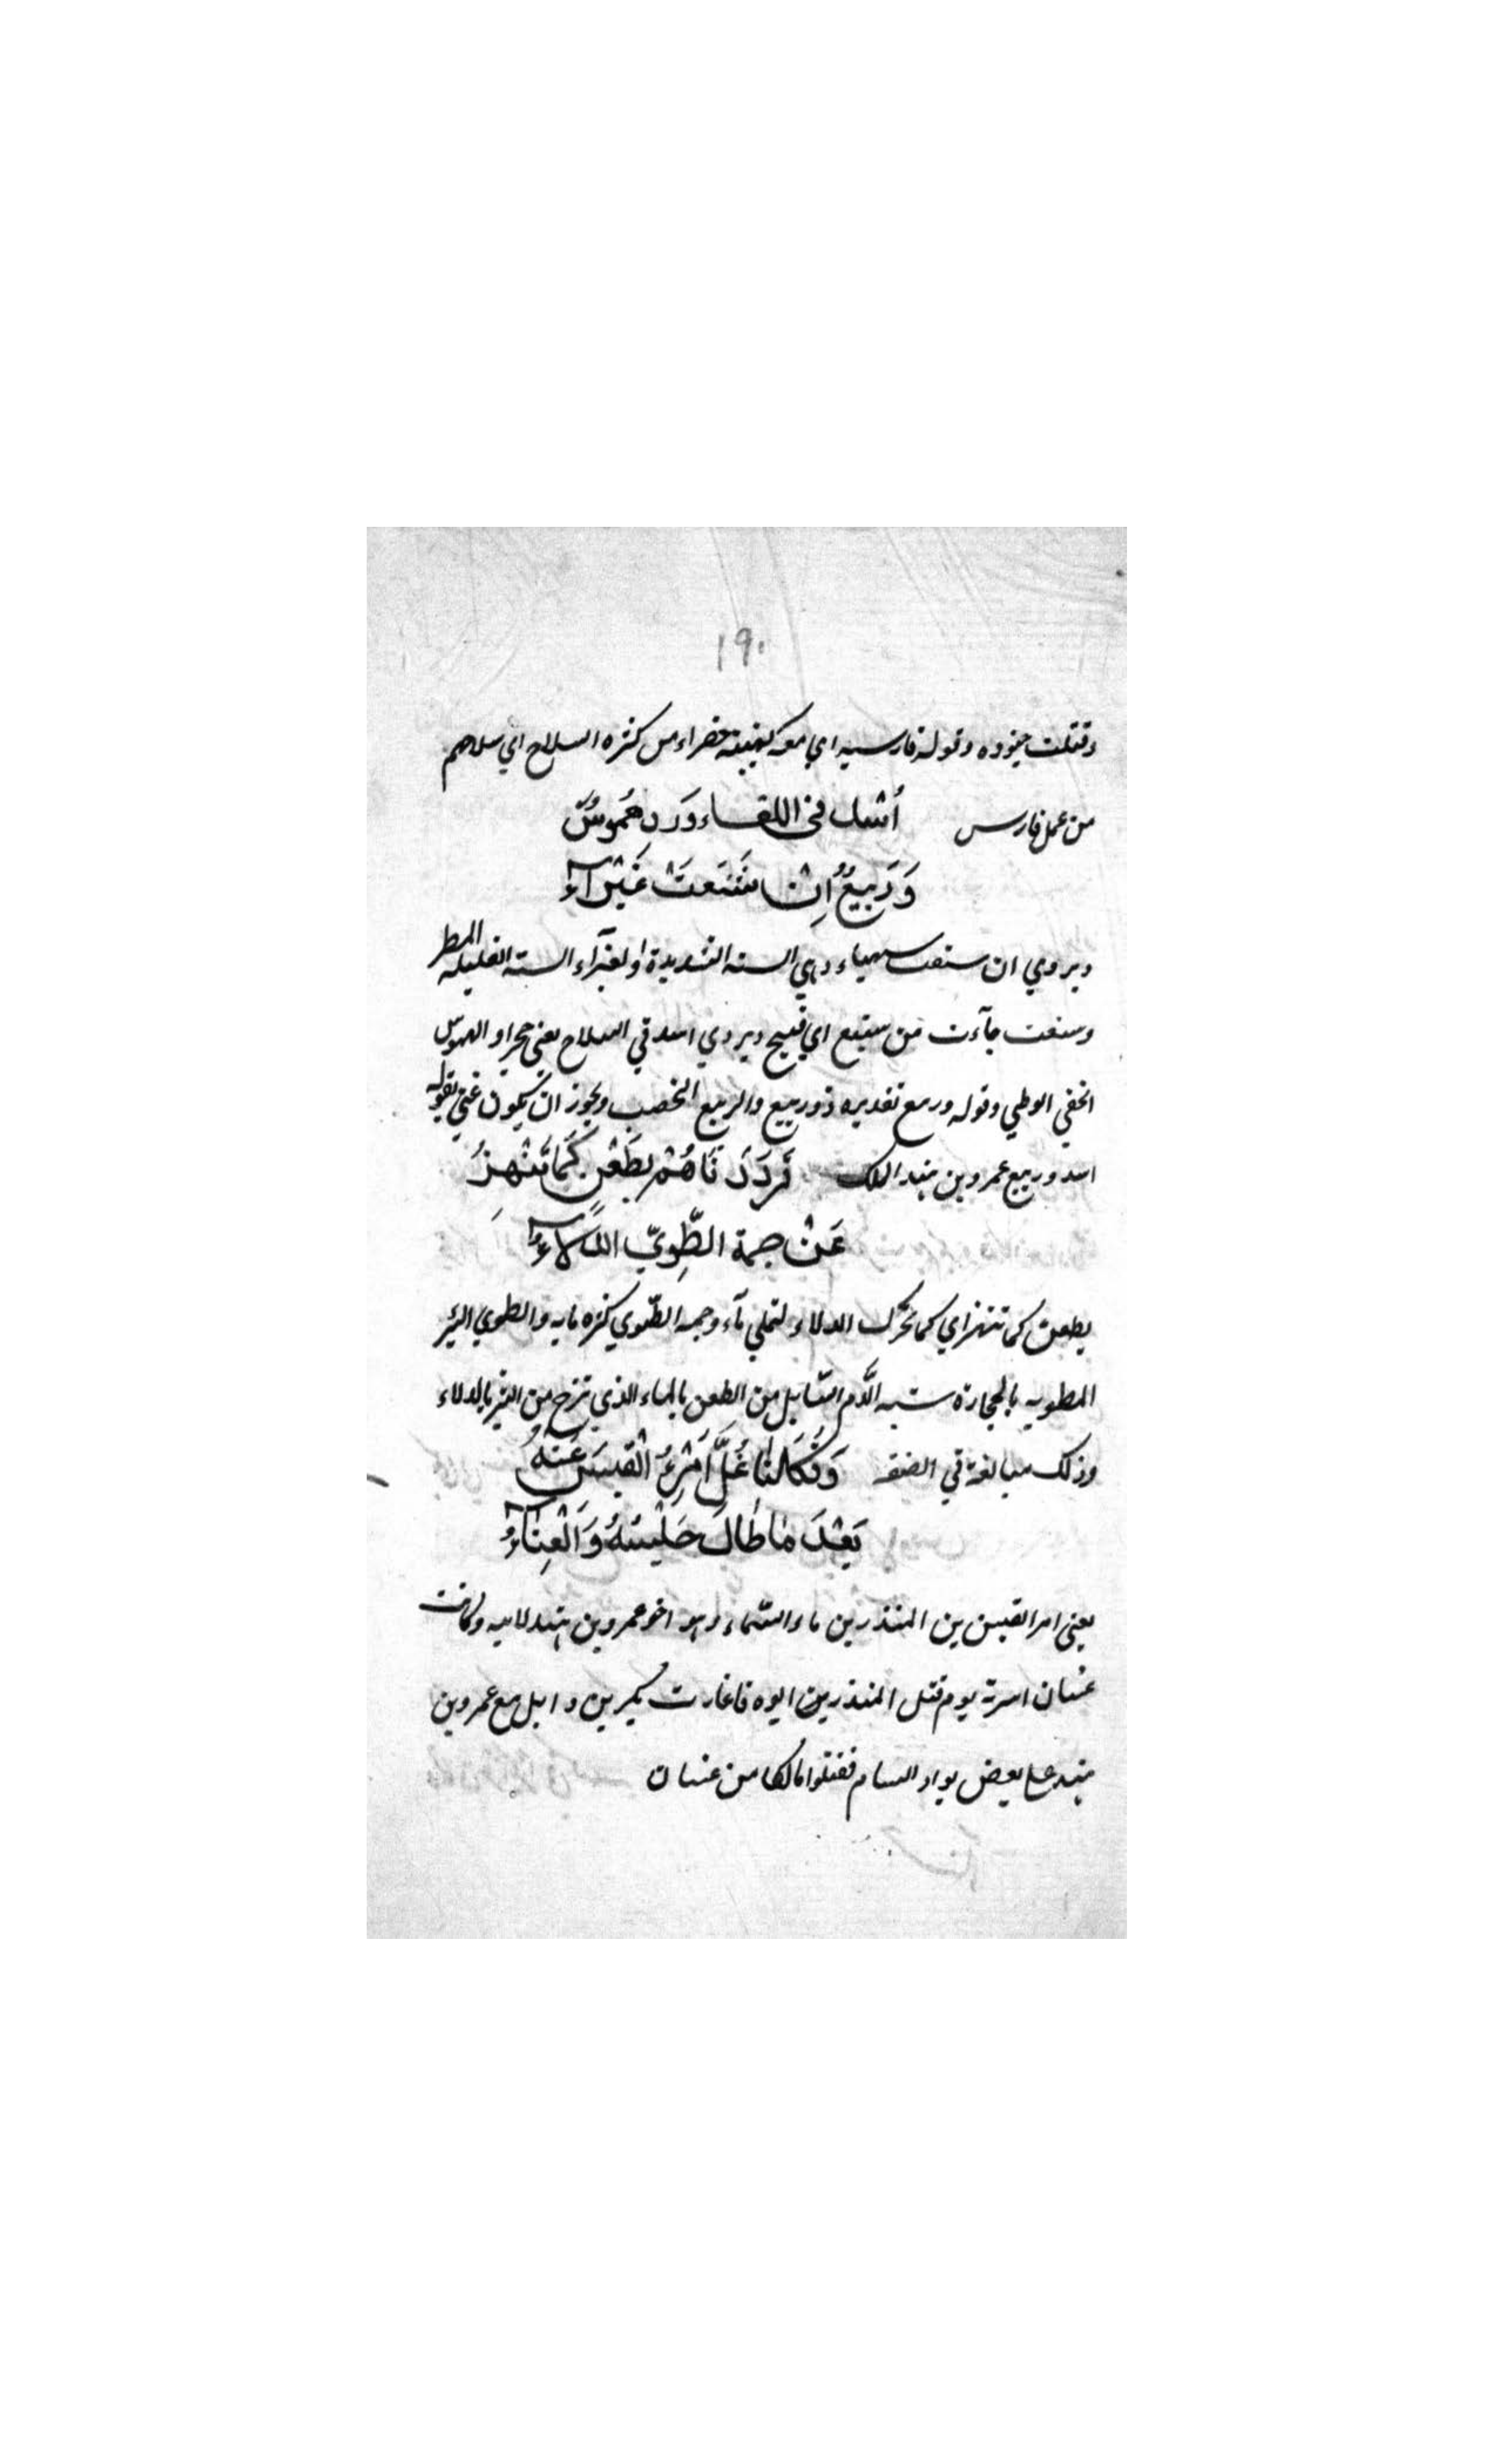 ١٩٠
وقتلت جنوده وقوله فارسيه اي معه كتيبة خضراء من كثره السلاح اي سلاحهم
من عمل فارس أسد في اللقاء وَرد هَمُوسٌ
وَرَبيعٌ اِنْ شَنَعتَ غَبْرآءُ
ويروي ان سنعت سهباء وهي السنه الشديدة والغبرآء السنه القليله المطر
وسنعت جآءت من سنيع اي قبيح ويروي اسد في السلاح يعني حجرا والهموس
الخفي الوطي وقوله وربيع تقديره ذو ربيع والربيع الخصب ويجوز ان يكون عني بقوله
اسد وربيع عمرو بن هند الملك فَرَدَدنَاهُمْ بِطَعْنٍ كَمَا تُنْهزُ
عَنْ جمة الطَّوِيّ الدَّلاءُ
بطعن كما تنهز اي كما تحرك الدلاء لتملي مآء وجمه الطّوي كثره مايه والطوي البئر
المطويه بالحجارة شبه الدَّم السّايل من الطعن بالماء الذي نزح من البئر بالدلاء
وذلك مبالغة في الصفه وَفَكَكنَا غُلَّ اَمْرِءُ الْقيسَ عَنْهُ
بَعْدَ مَا طَالَ حَبْسُهُ وَالْعِنَآءُ
يعني امر القيس بن المنذر بن ماء السّماء وهو اخو عمرو بن هند لابيه وكانت
غسان اسرته يوم قتل المنذر بن ابوه فاغارت بكر بن وايل مع عمرو بن
هند علي بعض بوادر الشام فقتلوا مالكا من غسان